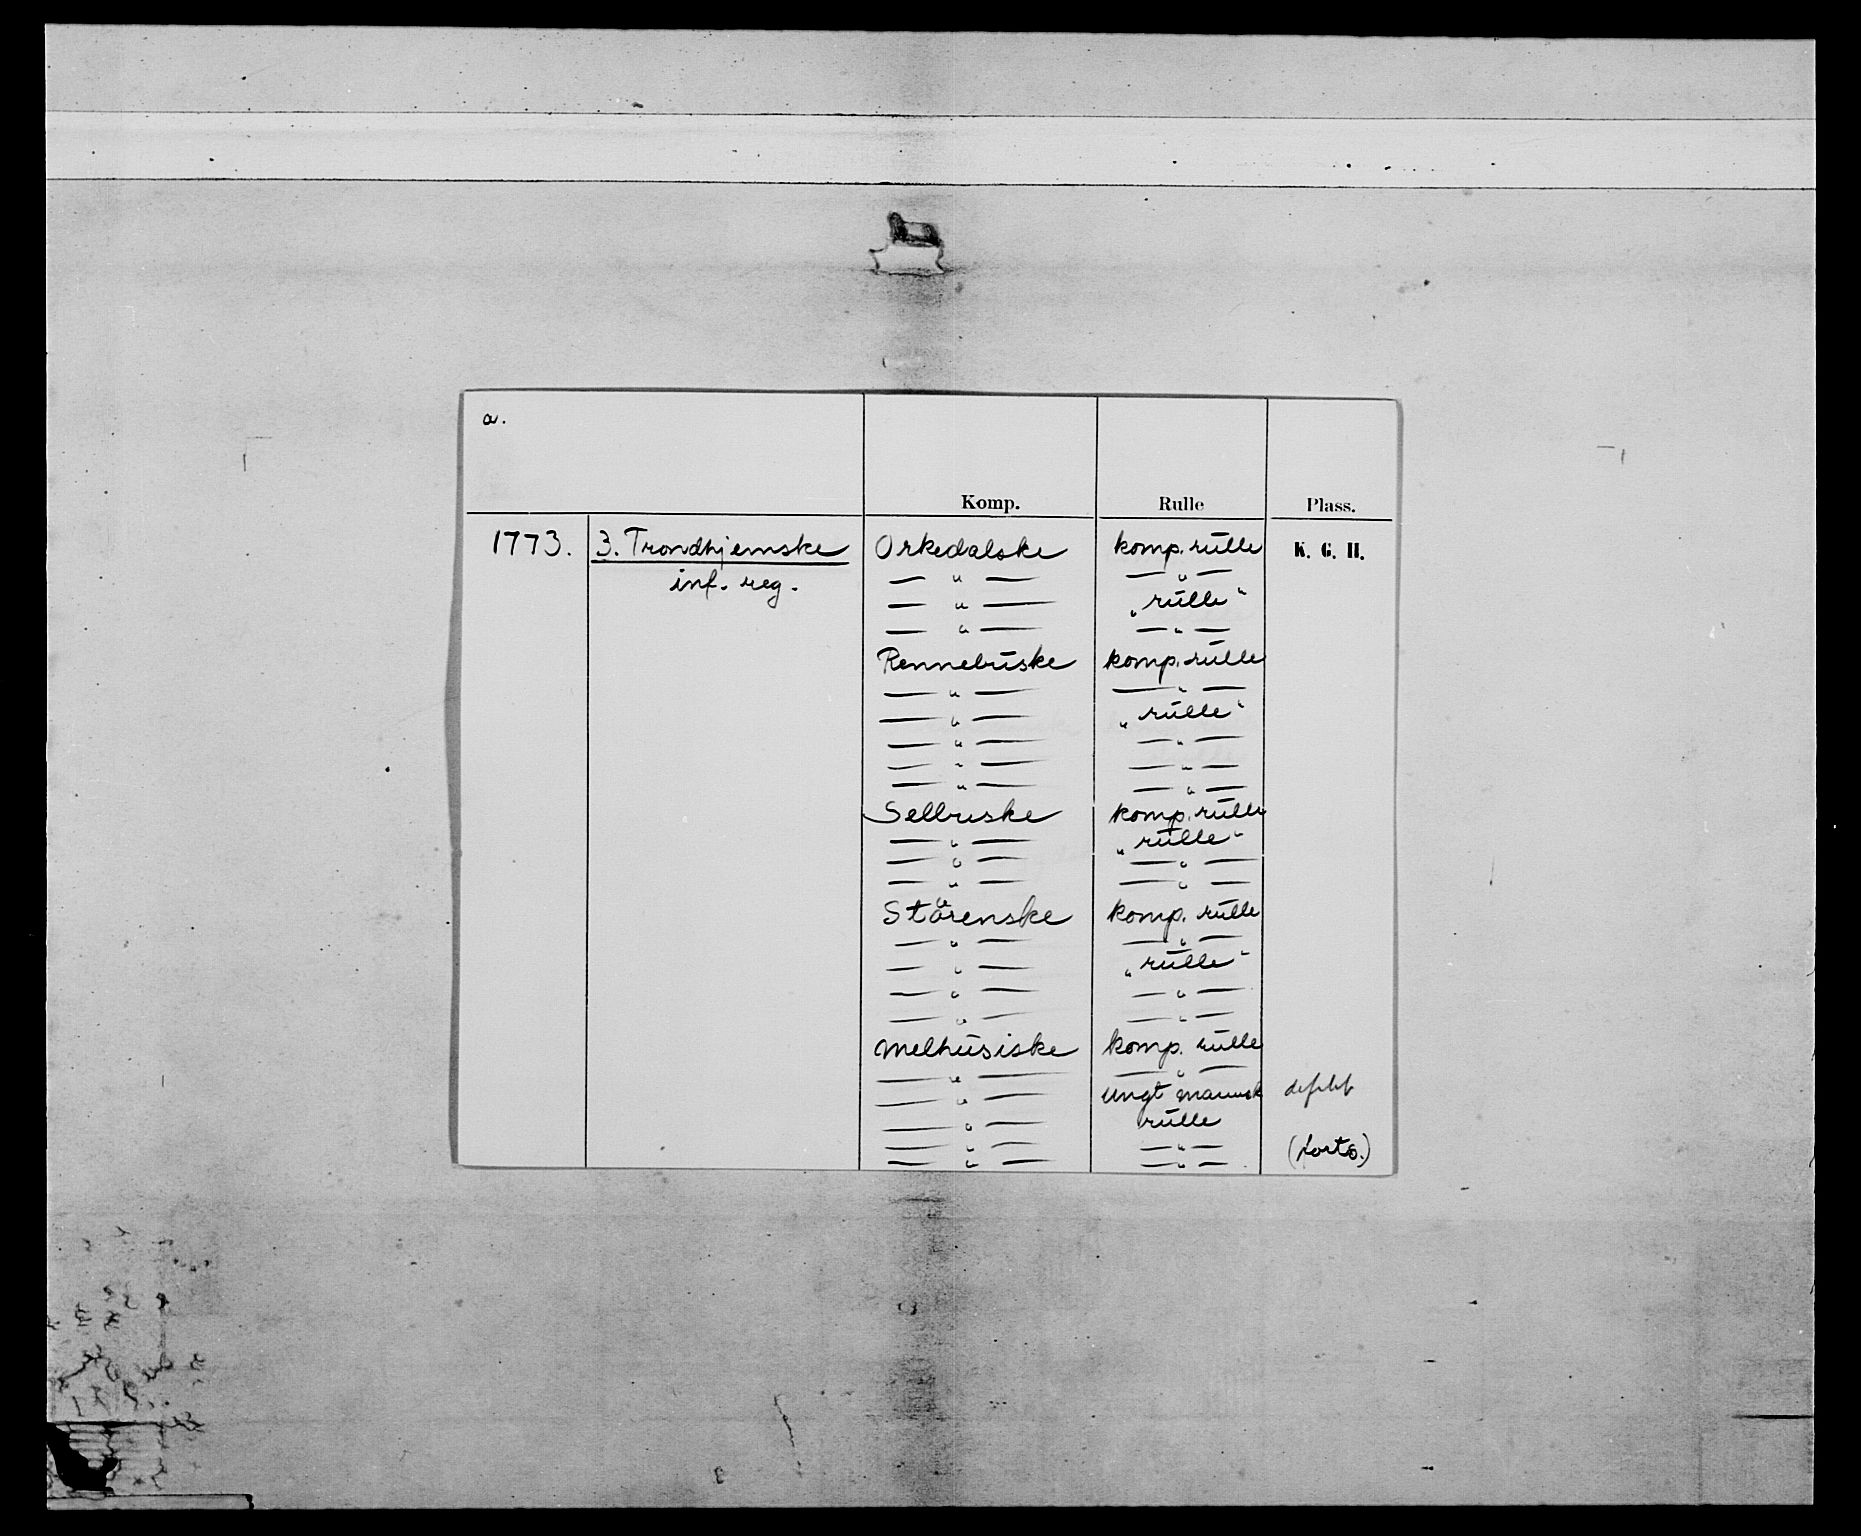 a.
Komp. Rulle Plass.
1773. 3. Trondhjemske Orkedalske komp. rulle K. G. H.
inf. reg. — " — — " —
— " — „rulle“
— " — — " —
Rennebuske komp. rulle
— " — — " —
— " — „rulle“
— " — — " —
— " — — " —
— " — — " —
Selbuske komp. rulle
— " — „rulle“
— " — — " —
— " — — " —
Störenske komp. rulle
— " — — " —
— " — „rulle“
— " — — " —
— " — — " —
Melhusiske komp. rulle
— " — — " —
— " — ungt mannsk
— " — rulle
— " — — " — (forts.)
— " — — " —